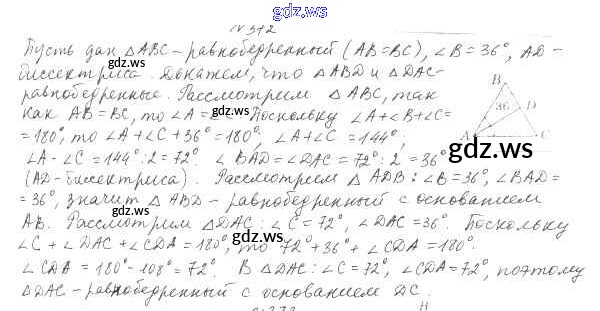 gdz.ws
№ 312
Пусть дан △ABC - равнобедренный (AB=BC), ∠B = 36°, AD-
биссектриса. Докажем, что △ABD и △DAC-
равнобедренные. Рассмотрим △ABC, так
как AB = BC, то ∠A = Поскольку ∠A+∠B+∠C=
= 180°, то ∠A + ∠C + 36° = 180°, ∠A + ∠C = 144°,
∠A - ∠C = 144° : 2 = 72°. ∠BAD = ∠DAC = 72° : 2 = 36°
(AD - биссектриса). Рассмотрим △ADB : ∠B = 36°, ∠BAD =
= 36°, значит △ABD - равнобедренный с основанием
AB. Рассмотрим △DAC : ∠C = 72°, ∠DAC = 36°. Поскольку
∠C + ∠DAC + ∠CDA = 180°, то 72° + 36° + ∠CDA = 180°.
∠CDA = 180° - 108° = 72°. В △DAC : ∠C = 72°, ∠DAC, поэтому
△DAC - равнобедренный с основанием DC.
B
36
D
A
C
gdz.ws
gdz.ws
gdz.ws
H